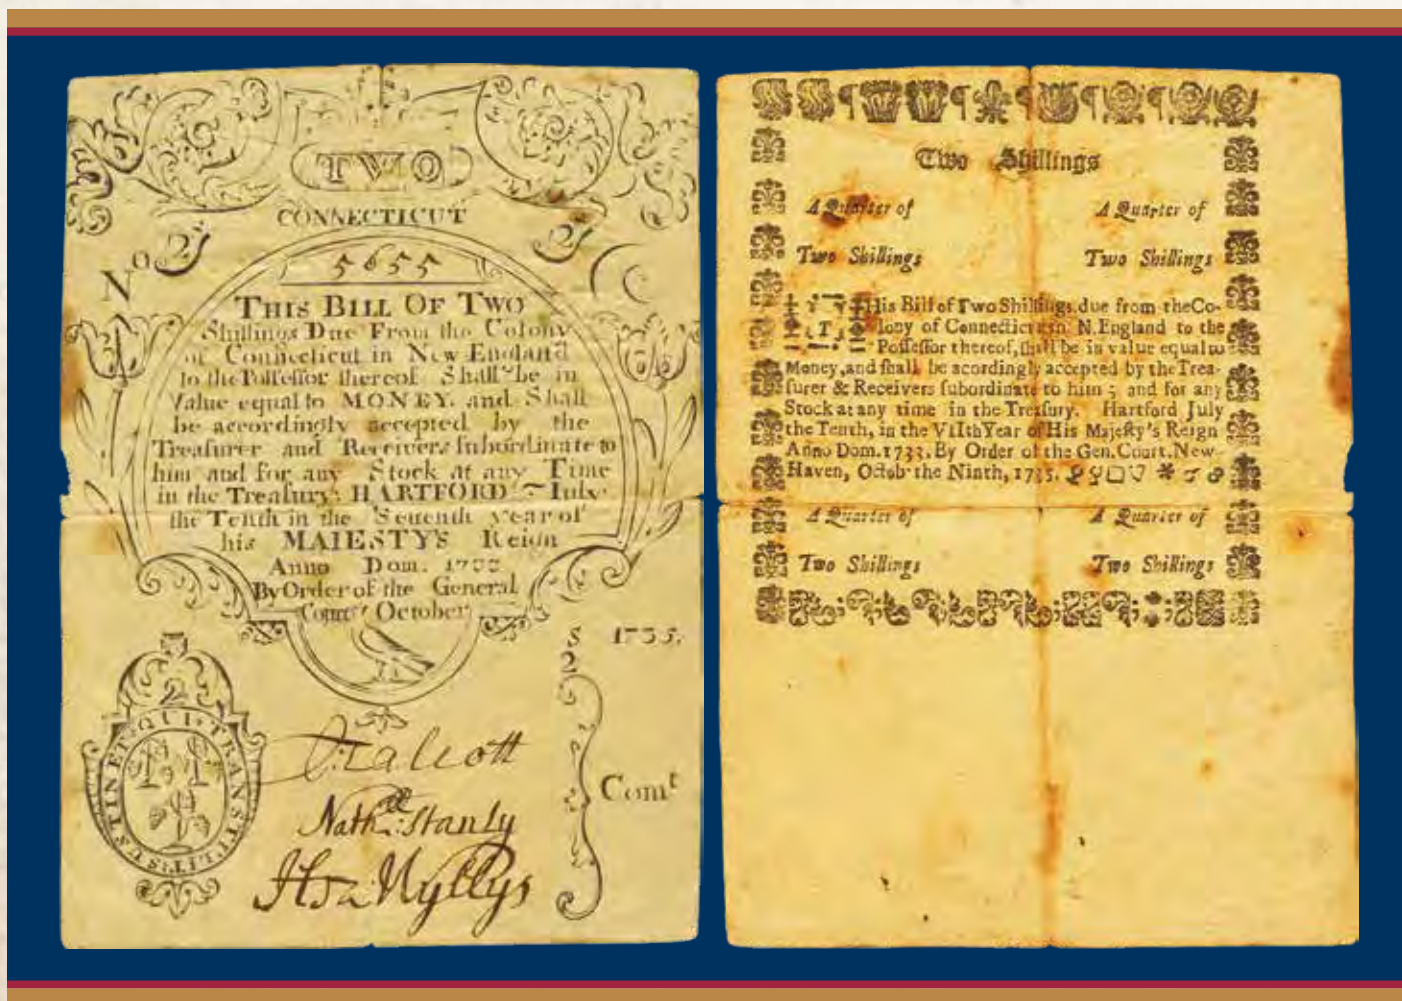 TWO
CONNECTICUT
No 2s 2s
5655
THIS BILL OF TWO
Shillings Due From the Colony
of Connecticut in New England
to the Poſſeſſor thereof Shall be in
Value equal to MONEY. and Shall
be accordingly accepted by the
Treaſurer and Receivers ſubordinate to
him and for any Stock at any Time
in the Treaſury. HARTFORD ~ Iuly
the Tenth in the Seuenth year of
his MAIESTYS Reign
Anno Dom. 1733
By Order of the General
Court October
1735.
S
2
2
SUSTINET QUI TRANSTULIT
J Talcott
Nathll Stanly
Hez Wyllys
Comt
Two Shillings
A Quarter of A Quarter of
Two Shillings Two Shillings
THis Bill of Two Shillings due from the Co-
lony of Connecticut in N. England to the
Poſſeſſor thereof, ſhall be in value equal to
Money, and ſhall be acordingly accepted by the Trea-
ſurer & Receivers ſubordinate to him ; and for any
Stock at any time in the Treaſury. Hartford July
the Tenth, in the VIIth Year of His Majeſty's Reign
Anno Dom. 1733. By Order of the Gen. Court. New-
Haven, Octob' the Ninth, 1735.
A Quarter of A Quarter of
Two Shillings Two Shillings